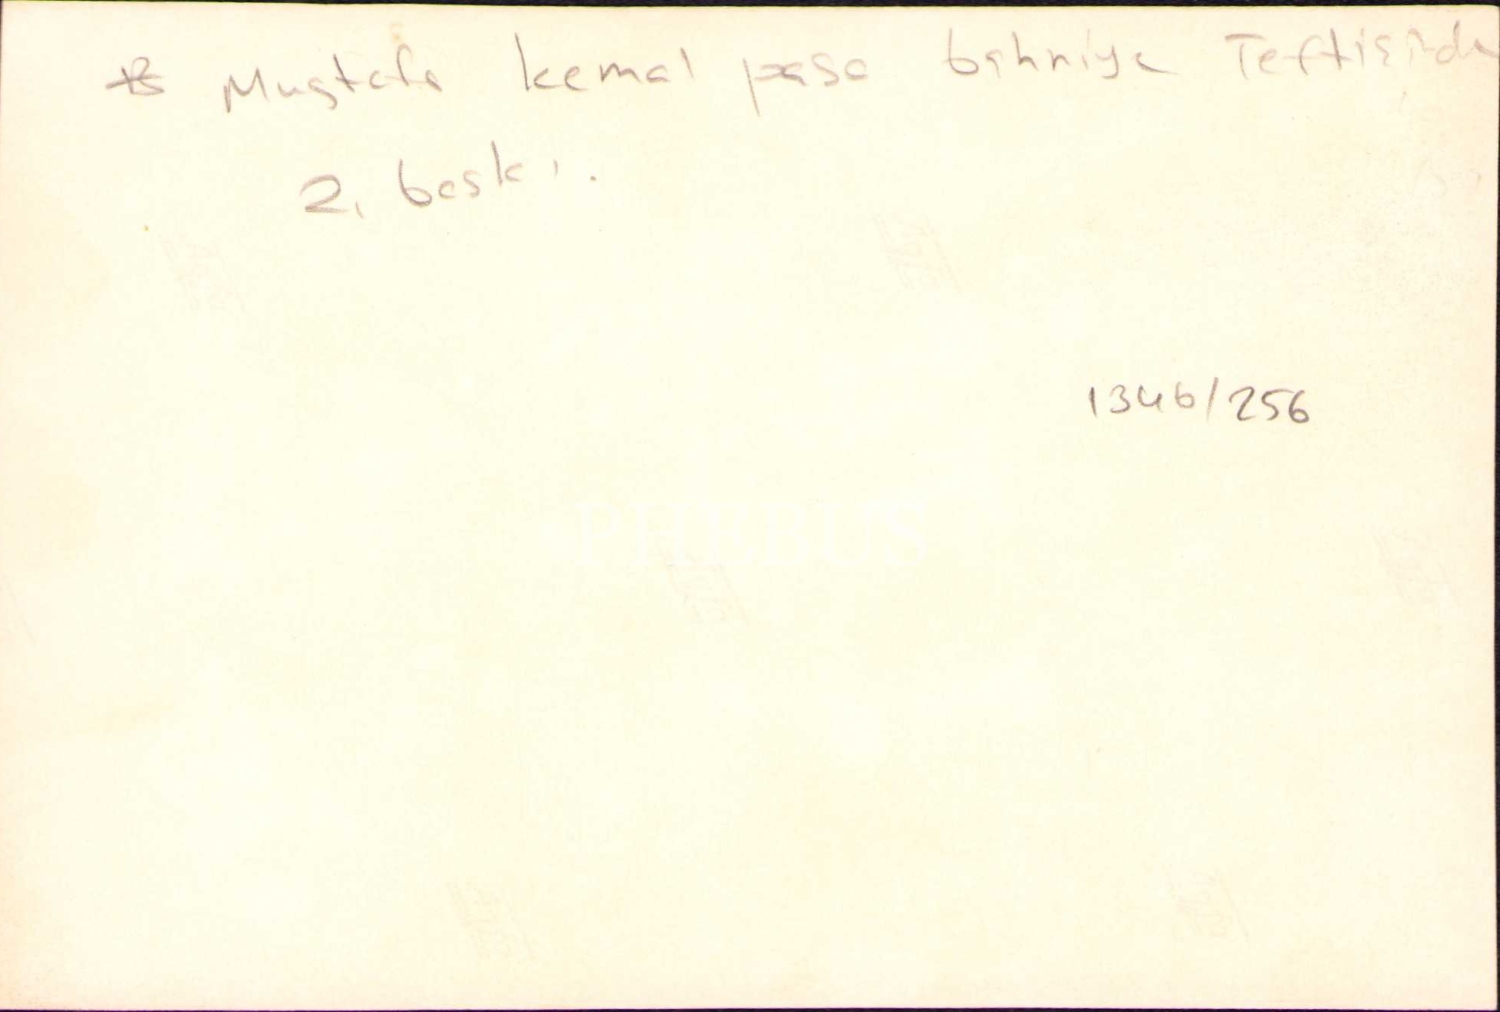 Mustafa kemal pasa bahriye Teftisinde
2. baskı.
1346/256
PHEBUS